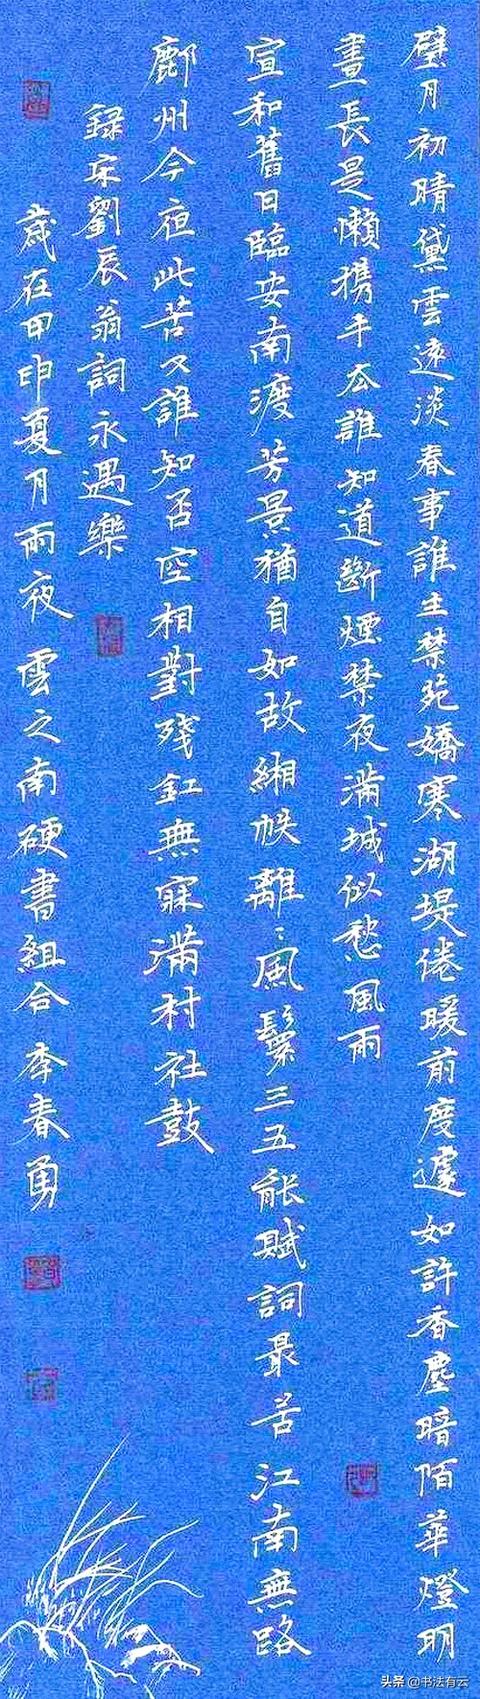 璧月初晴黛雲遠淡春事誰主禁苑嬌寒湖堤倦暖前度遽如許香塵暗陌華燈明
晝長是懶携手去誰知道斷煙禁夜滿城似愁風雨
宣和舊日臨安南渡芳景猶自如故緗帙離〻風鬟三五能賦詞最苦江南無路
鄜州今夜此苦又誰知否空相對殘釭無寐滿村社鼓
録宋劉辰翁詞永遇樂
歲在甲申夏月雨夜雲之南硬書組合李春勇
头条 @书法有云